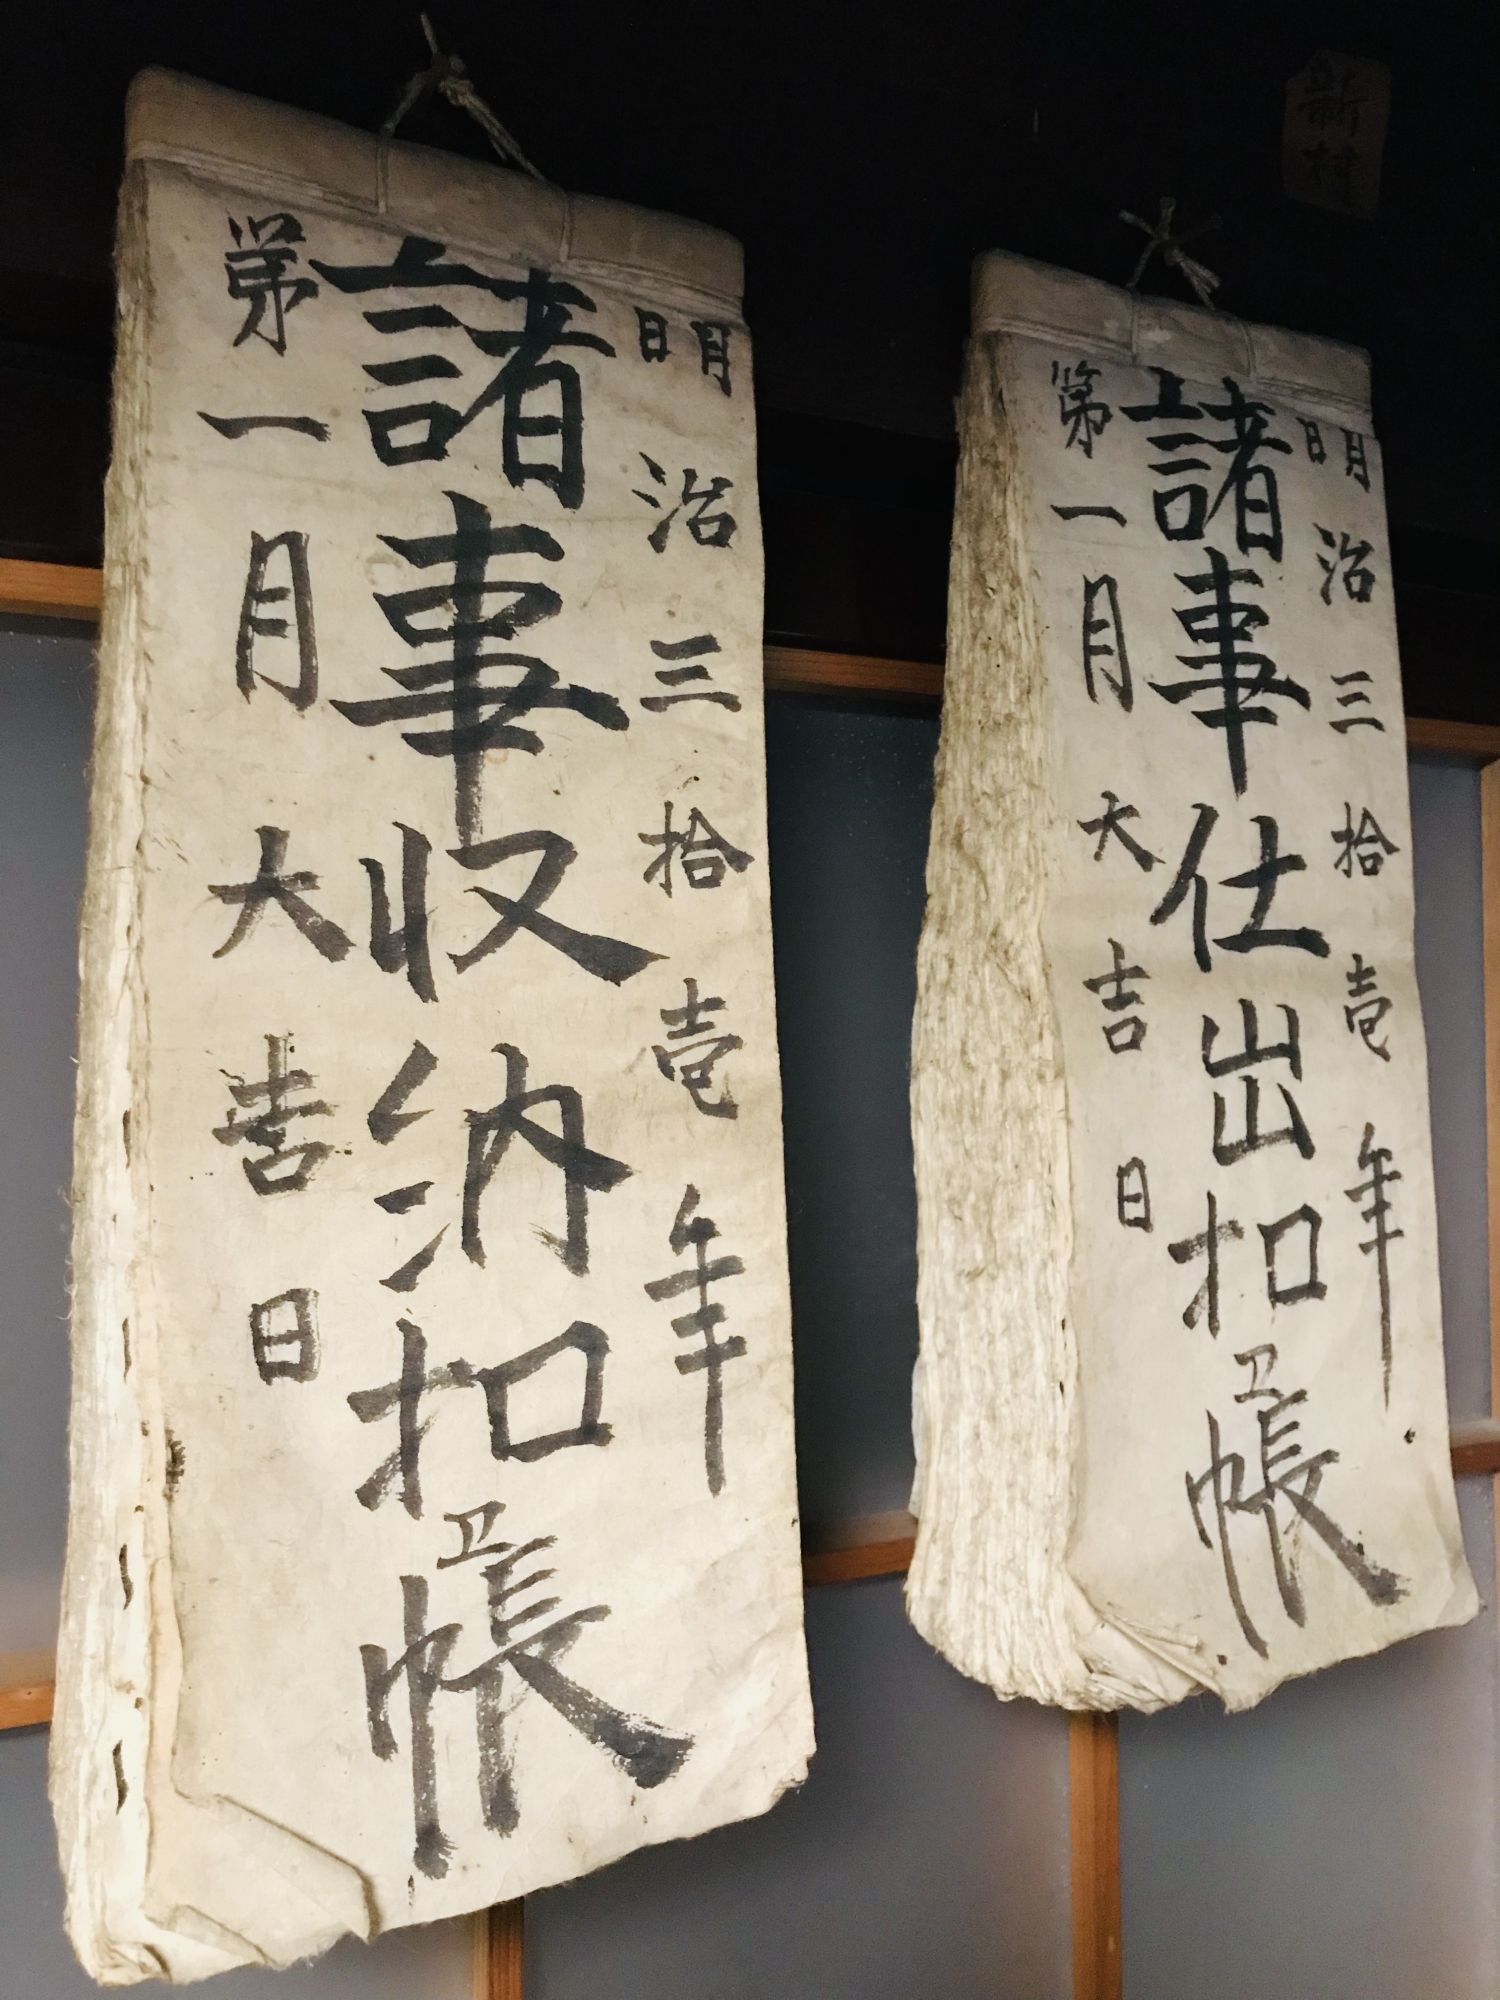 明治三拾壱年
諸事収納扣帳
第一月大吉日
明治三拾壱年
諸事仕出扣帳
第一月大吉日
新村